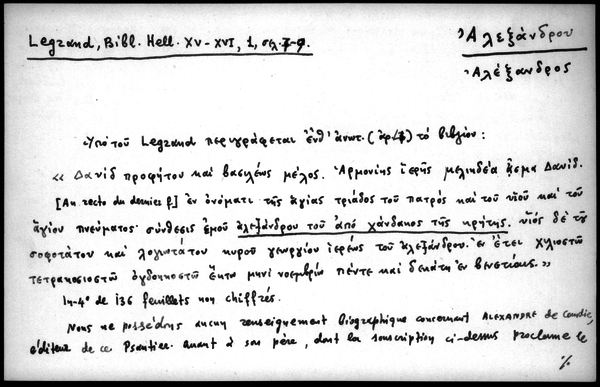 Legrand, Bibl. Hell. XV-XVI, 1, σελ. 7-9.
Ἀλεξάνδρου
Ἀλέξανδρος
Ὑπὸ τοῦ Legrand περιγράφεται ἔνθ' ἀνωτ. τὸ βιβλίον:
« Δαυὶδ προφήτου καὶ βασιλέως μέλος. Ἁρμονίης ἱερῆς μελιηδέα ᾆσμα Δαυίδ.
[Au recto du dernier f.] ἐν ὀνόματι τῆς ἁγίας τριάδος τοῦ πατρὸς καὶ τοῦ υἱοῦ καὶ τοῦ
ἁγίου πνεύματος. σύνθεσις ἐμοῦ ἀλεξάνδρου τοῦ ἀπὸ χάνδακος τῆς κρήτης. υἱὸς δὲ τοῦ
σοφοτάτου καὶ λογιωτάτου κυροῦ γεωργίου ἱερέως τοῦ ἀλεξάνδρου. ἐν ἔτει χιλιοστῷ
τετρακοσιοστῷ ὀγδοηκοστῷ ἕκτῳ μηνὶ νοεμβρίῳ πέντε καὶ δεκάτῃ ἐν βενετίαις. »
In-4° de 136 feuillets non chiffrés.
Nous ne possédons aucun renseignement biographique concernant ALEXANDRE de Candie,
éditeur de ce Psautier. Quant à son père, dont la souscription ci-dessus proclame le
%